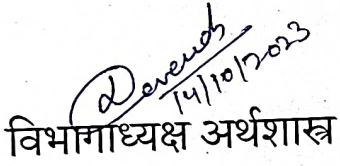 Devendr
14/10/2023
विभागाध्यक्ष अर्थशास्त्र